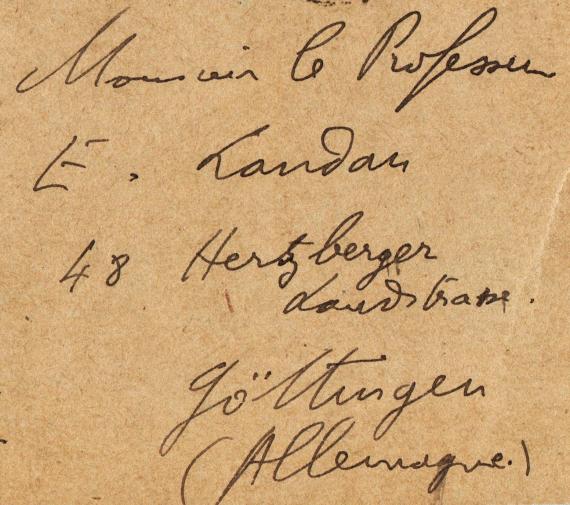 Monsieur le Professeur
E. Landau
48 Hertzberger
Landstrasse.
Göttingen
(Allemagne.)